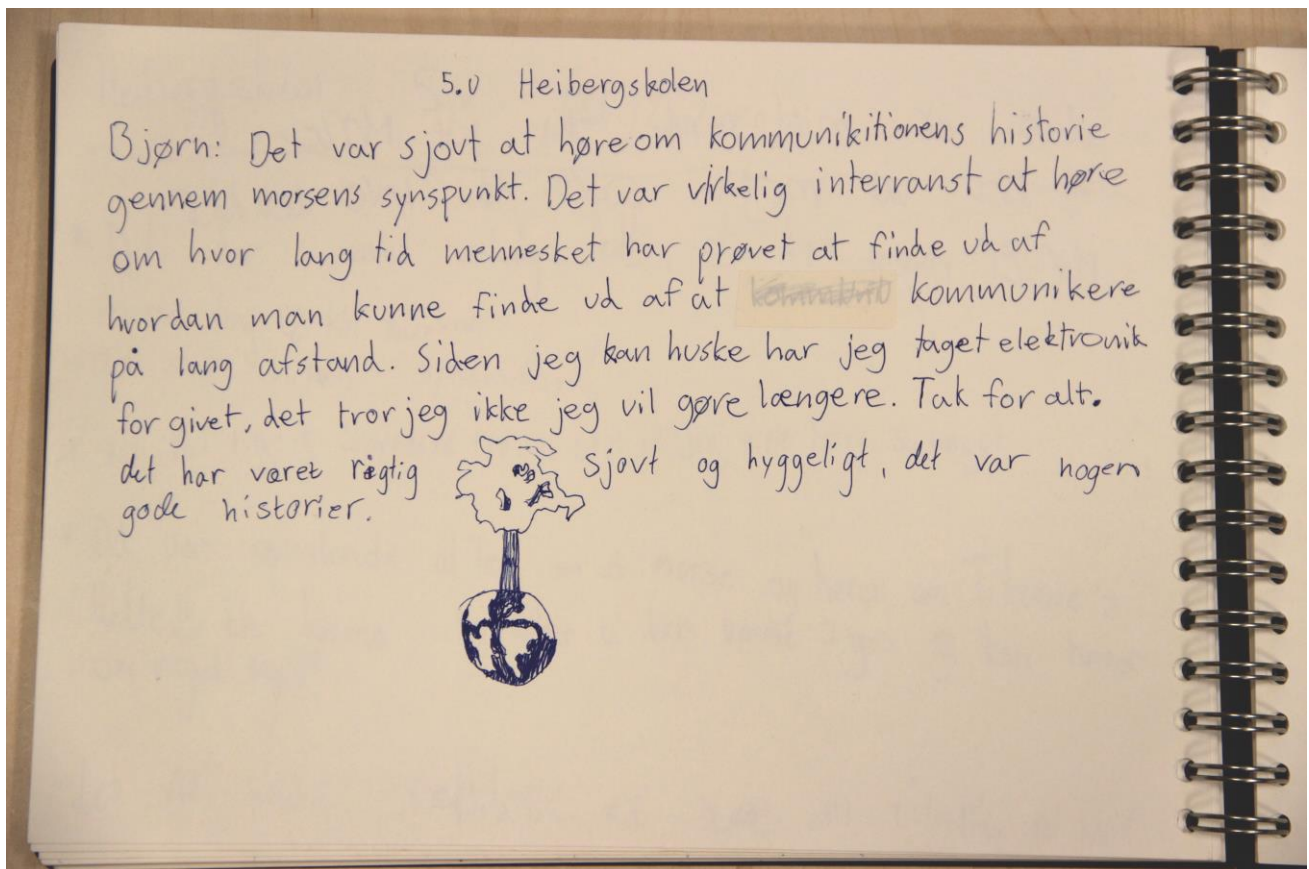 5.U Heibergskolen
Bjørn: Det var sjovt at høre om kommunikitionens historie
gennem morsens synspunkt. Det var virkelig interranst at høre
om hvor lang tid mennesket har prøvet at finde ud af
hvordan man kunne finde ud af at kommunikere
på lang afstand. Siden jeg kan huske har jeg taget elektronik
for givet, det tror jeg ikke jeg vil gøre længere. Tak for alt.
det har været rigtig sjovt og hyggeligt, det var nogen
gode historier.